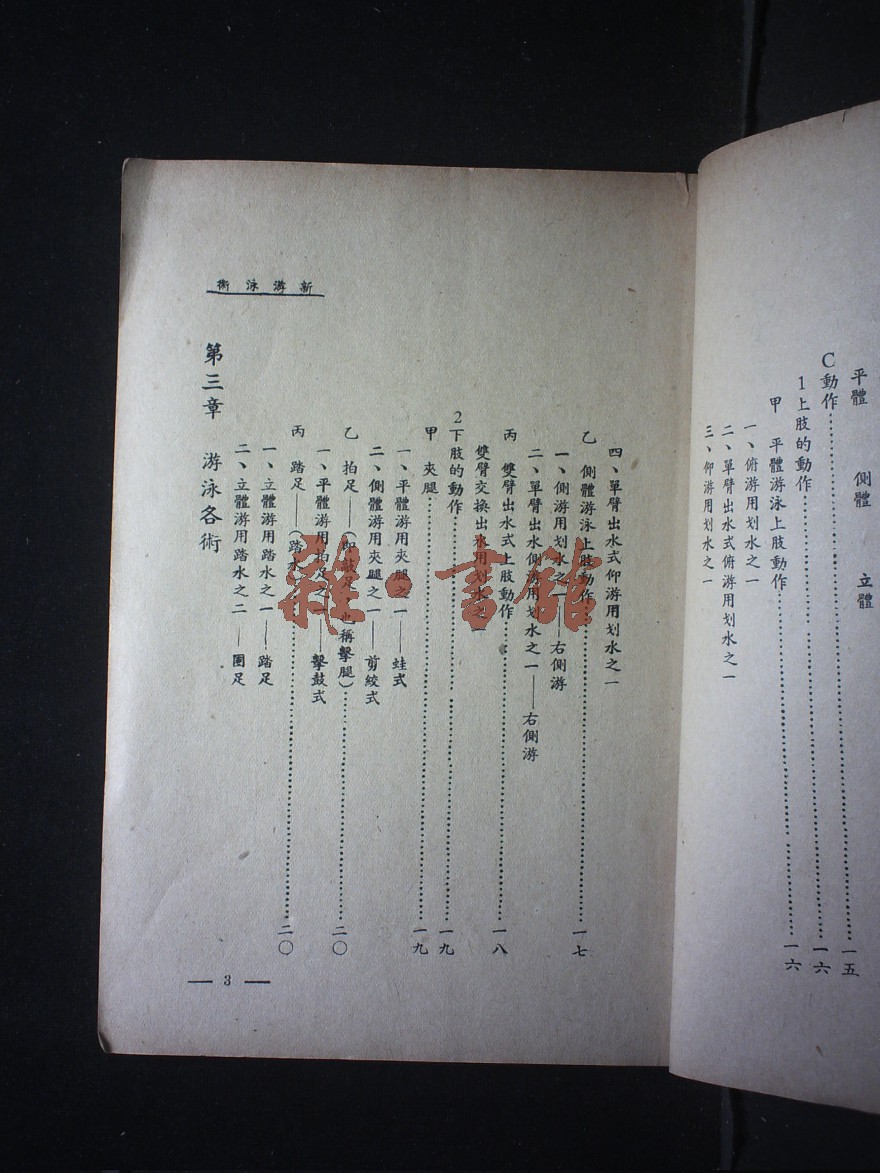 平體　側體　立體
C動作……一五
1上肢的動作……一六
甲　平體游泳上肢動作……一六
一、俯游用划水之一
二、單臂出水式俯游用划水之一
三、仰游用划水之一
四、單臂出水式仰游用划水之一
乙　側體游泳上肢動作……一七
一、側游用划水之一——右側游
二、單臂出水側游用划水之一——右側游
丙　雙臂出水式上肢動作……一八
雙臂交換出水用划水之一
2下肢的動作……一九
甲　夾腿……一九
一、平體游用夾腿之一——蛙式
二、側體游用夾腿之一——剪絞式
乙　拍足——(即鼓足，也稱擊腿)……二〇
一、平體游用拍足之一——擊鼓式
丙　踏足——(踏水)……二〇
一、立體游用踏水之一——踏足
二、立體游用踏水之二——圈足
第三章　游泳各術
新游泳術
— 3 —
雜·書館